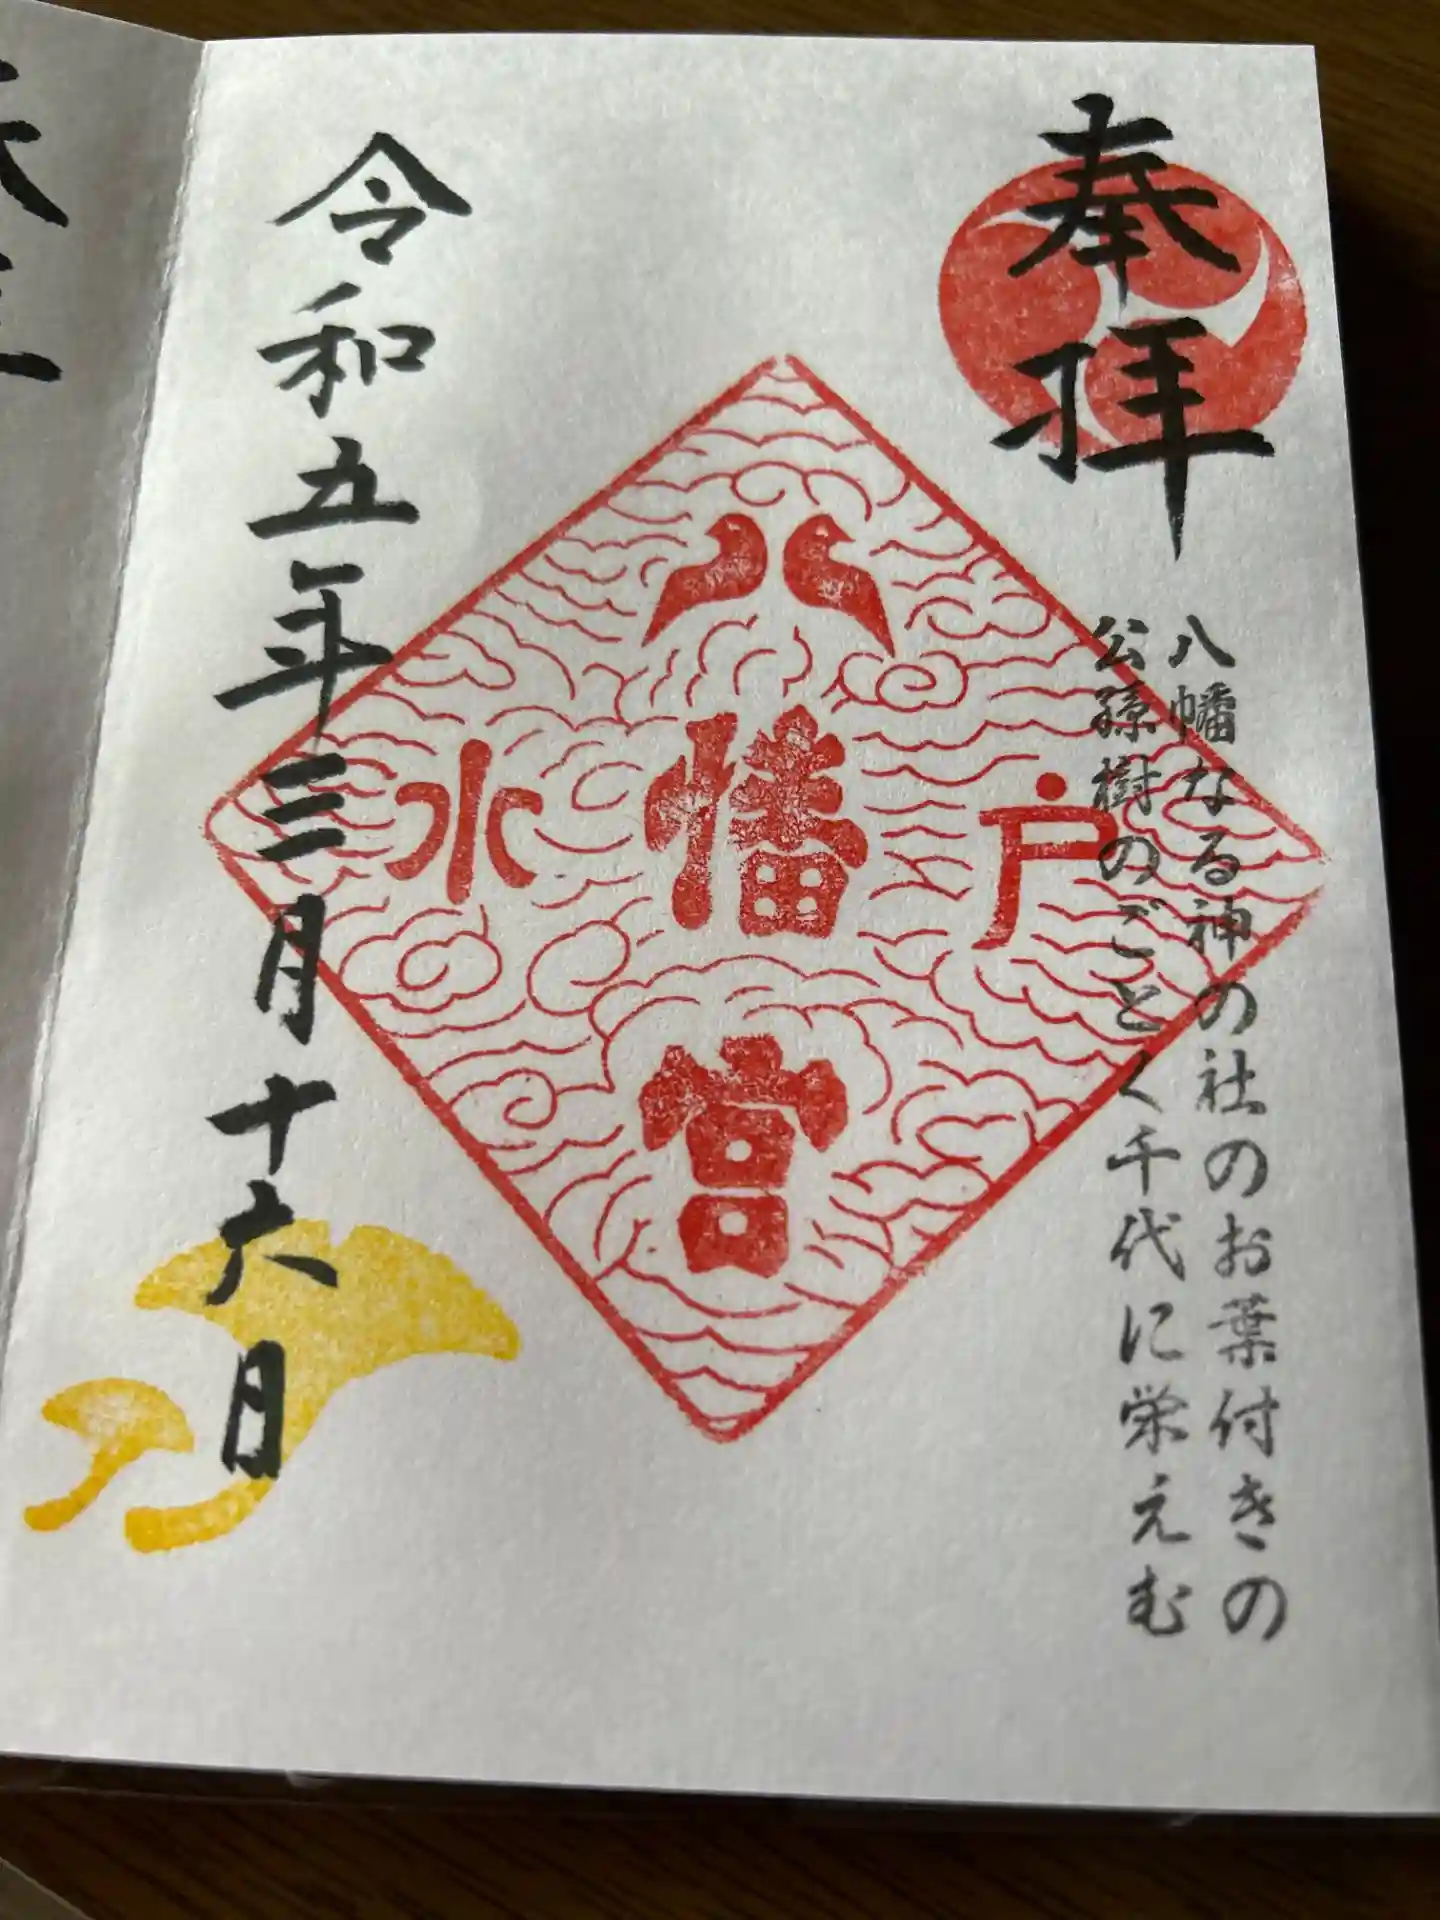 奉拝
八幡なる神の社のお葉付きの
公孫樹のごとく千代に栄えむ
水戸
八幡宮
令和五年三月十六日